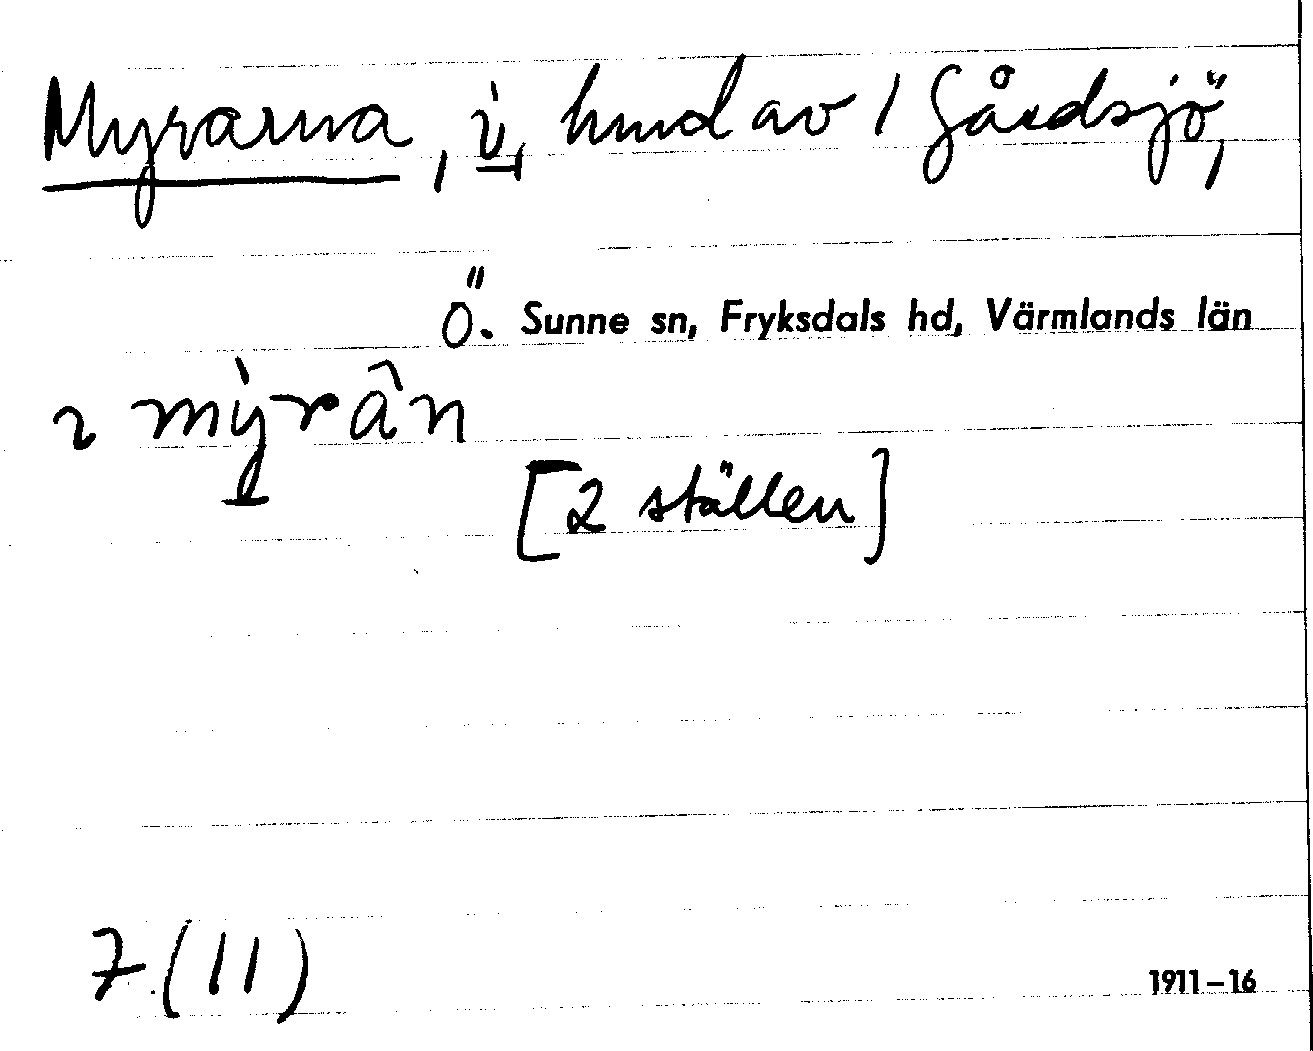 Myrarna, i, hmd av 1 Gårdsjö,
Ö. Sunne sn, Fryksdals hd, Värmlands län
ı mỳrân
[2 ställen]
7 (11)
1911–16